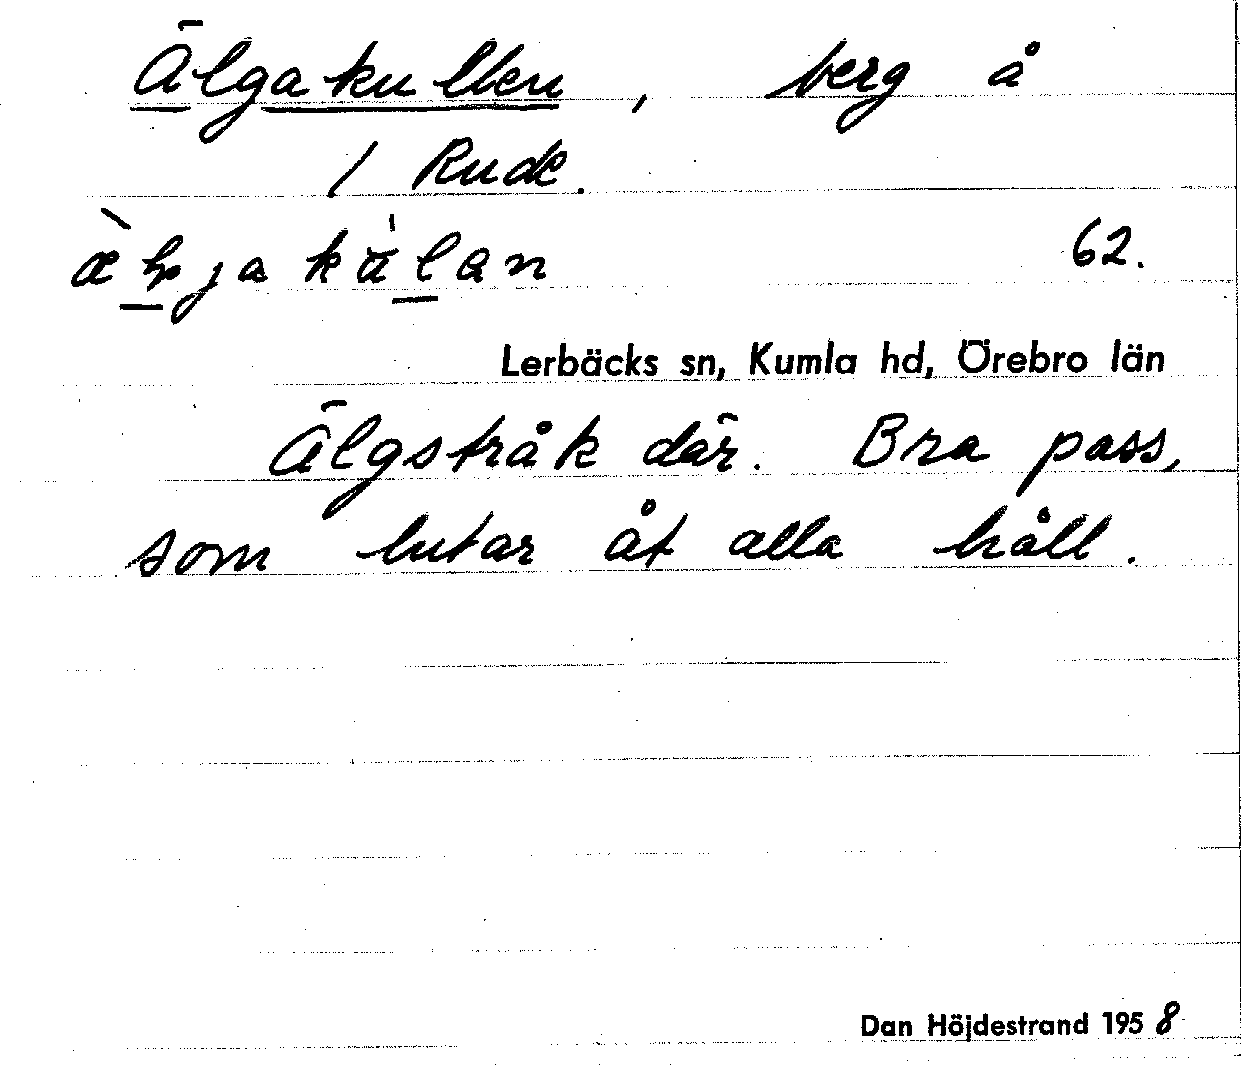 Älgakullen, berg å
/ Rude.
62.
Lerbäcks sn, Kumla hd, Örebro län
Älgstråk där. Bra pass,
som lutar åt alla håll.
Dan Höjdestrand 1958